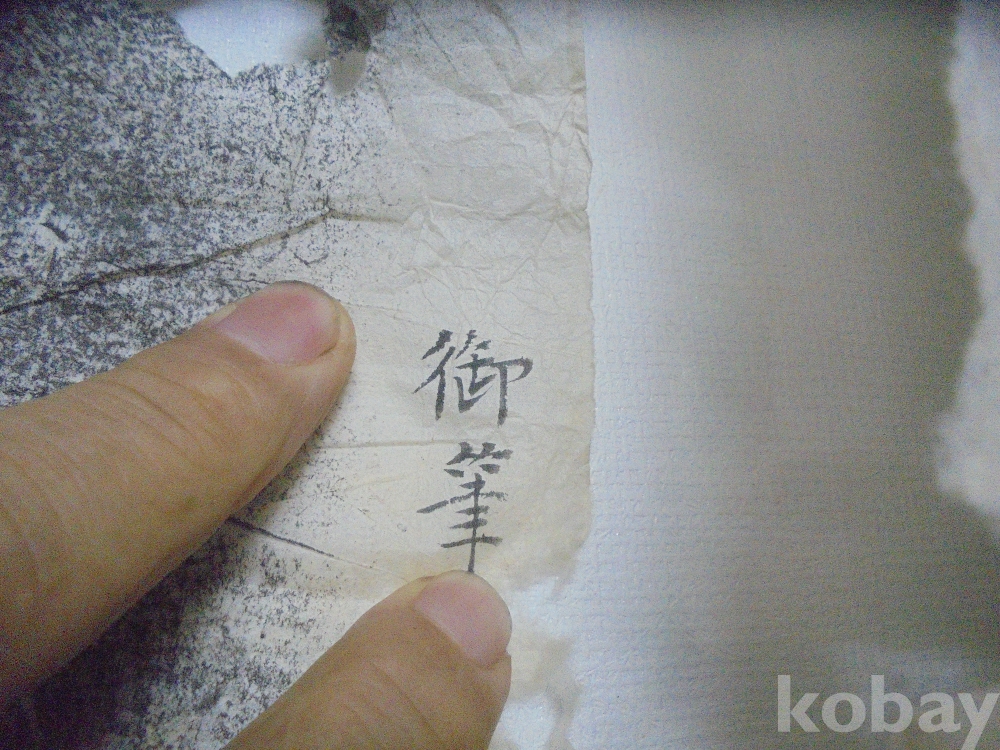 御筆
kobay